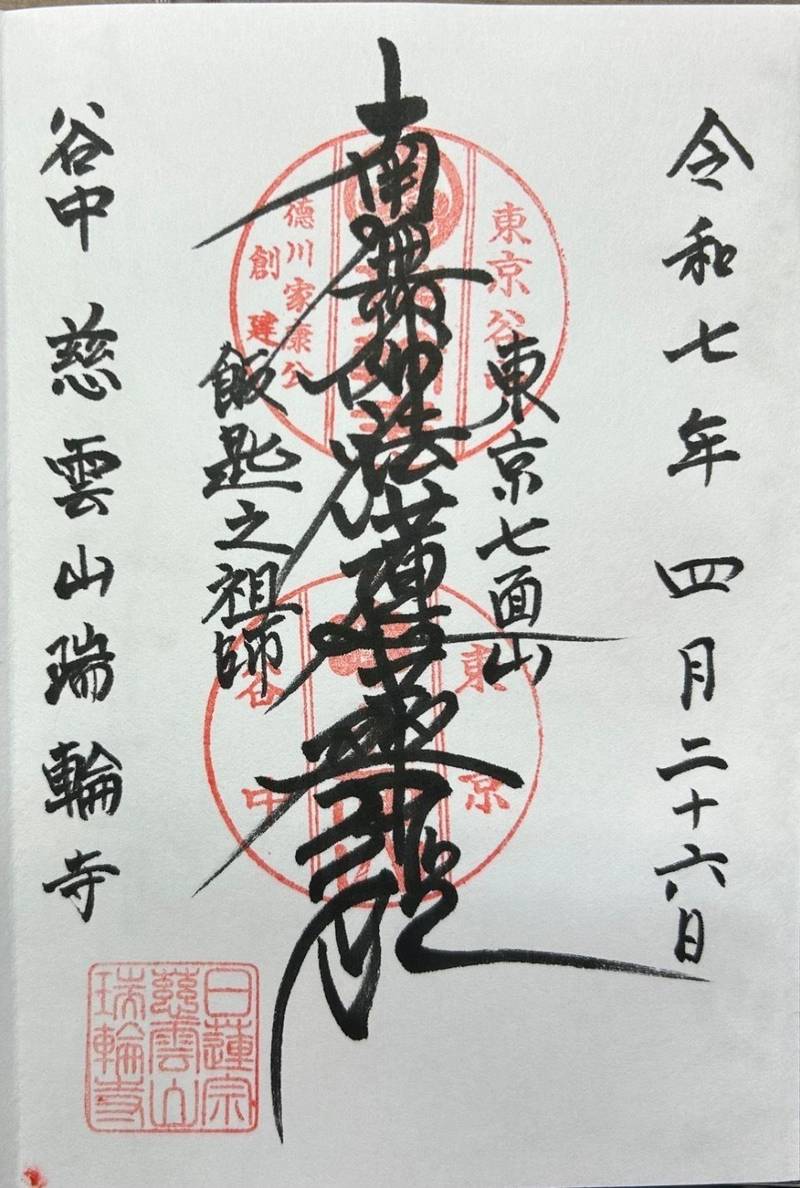 令和七年 四月二十六日
東京七面山
南無妙法蓮華経
飯匙之祖師
谷中 慈雲山瑞輪寺
東京谷
徳川家康公
創建
東京
谷中
日蓮宗
慈雲山
瑞輪寺